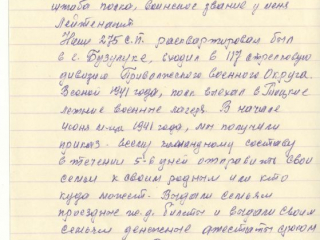 штаба полка, воинское звание у меня
Лейтенант
Наш 275 с.п. расквартирован был
в г. Бузулуке, входил в 117 стрелковую
дивизию Приволжского Военного Округа.
Весной 1941 года, полк выехал в Тоцкие
летние военные лагеря. В начале
июня м-ца 1941 года, мы получили
приказ - всему командному составу
в течении 5-6 дней отправить свои
семьи к своим родным или кто
куда может. Выдали семьям
проездные ж.д. билеты и выдали своим
семьям денежные аттестаты сроком